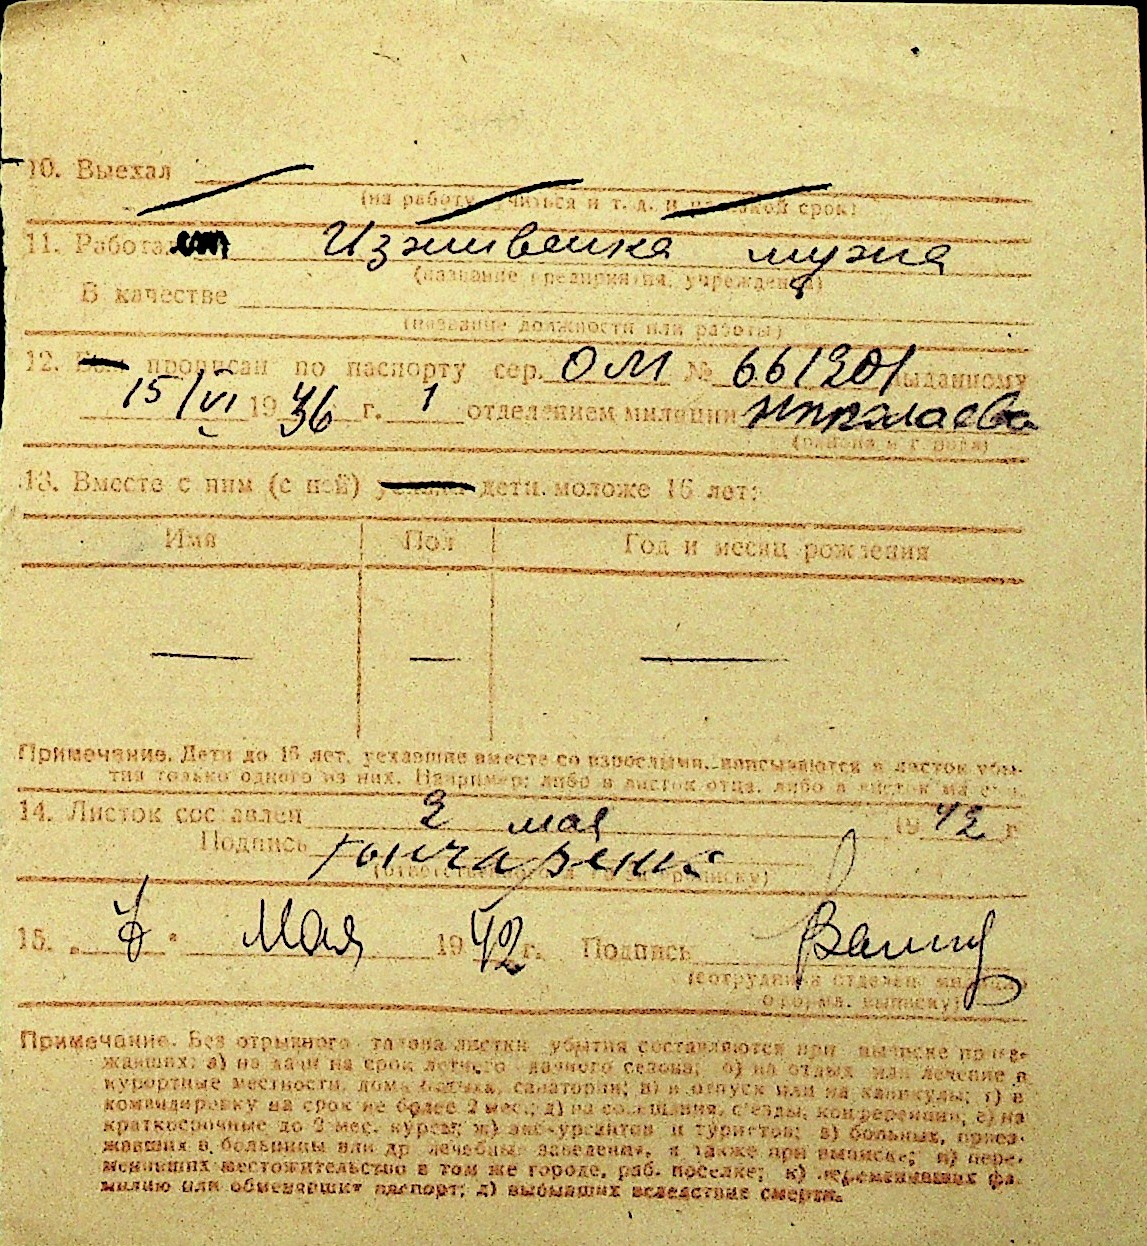 10. Выехал
(на работу, учиться и т. д. и на какой срок)
11. Работа Иждивенка мужа
(название предприятия, учреждения)
В качестве
(название должности или работы)
12. Был прописан по паспорту сер. ОМ № 661201 выданному
15/VI 1936 г. 1 отделением милиции Николаева
13. Вместе с ним (с ней) дети моложе 16 лет:
Имя Пол Год и месяц рождения
— — —
Примечание. Дети до 16 лет, уехавшие вместе со взрослыми, вписываются в листок убы-
тия только одного из них. Например: либо в листок отца, либо в листок
14. Листок составлен 2 мая 1942 г
Подпись Гончаренко
15. „ " Мая 1942 г. Подпись
(сотрудника отделен. милиции
оформ. выписку)
Примечание. Без отрывного талона листки убытия составляются при выписке приез-
жавших: а) на дачи на срок летнего дачного сезона; б) на отдых или лечение в
курортные местности, дома отдыха, санатории; в) в отпуск или на каникулы; г) в
командировку на срок не более 2 мес.; д) на совещания, съезды, конференции, е) на
краткосрочные до 2 мес. курсы; ж) экскурсантов и туристов; з) больных, приез-
жавших в больницы или др лечебные заведения, а также при выписке; и) пере-
менивших местожительство в том же городе, раб. поселке; к) переменивших фа-
милию или обменявших паспорт; л) выбывших вследствие смерти.